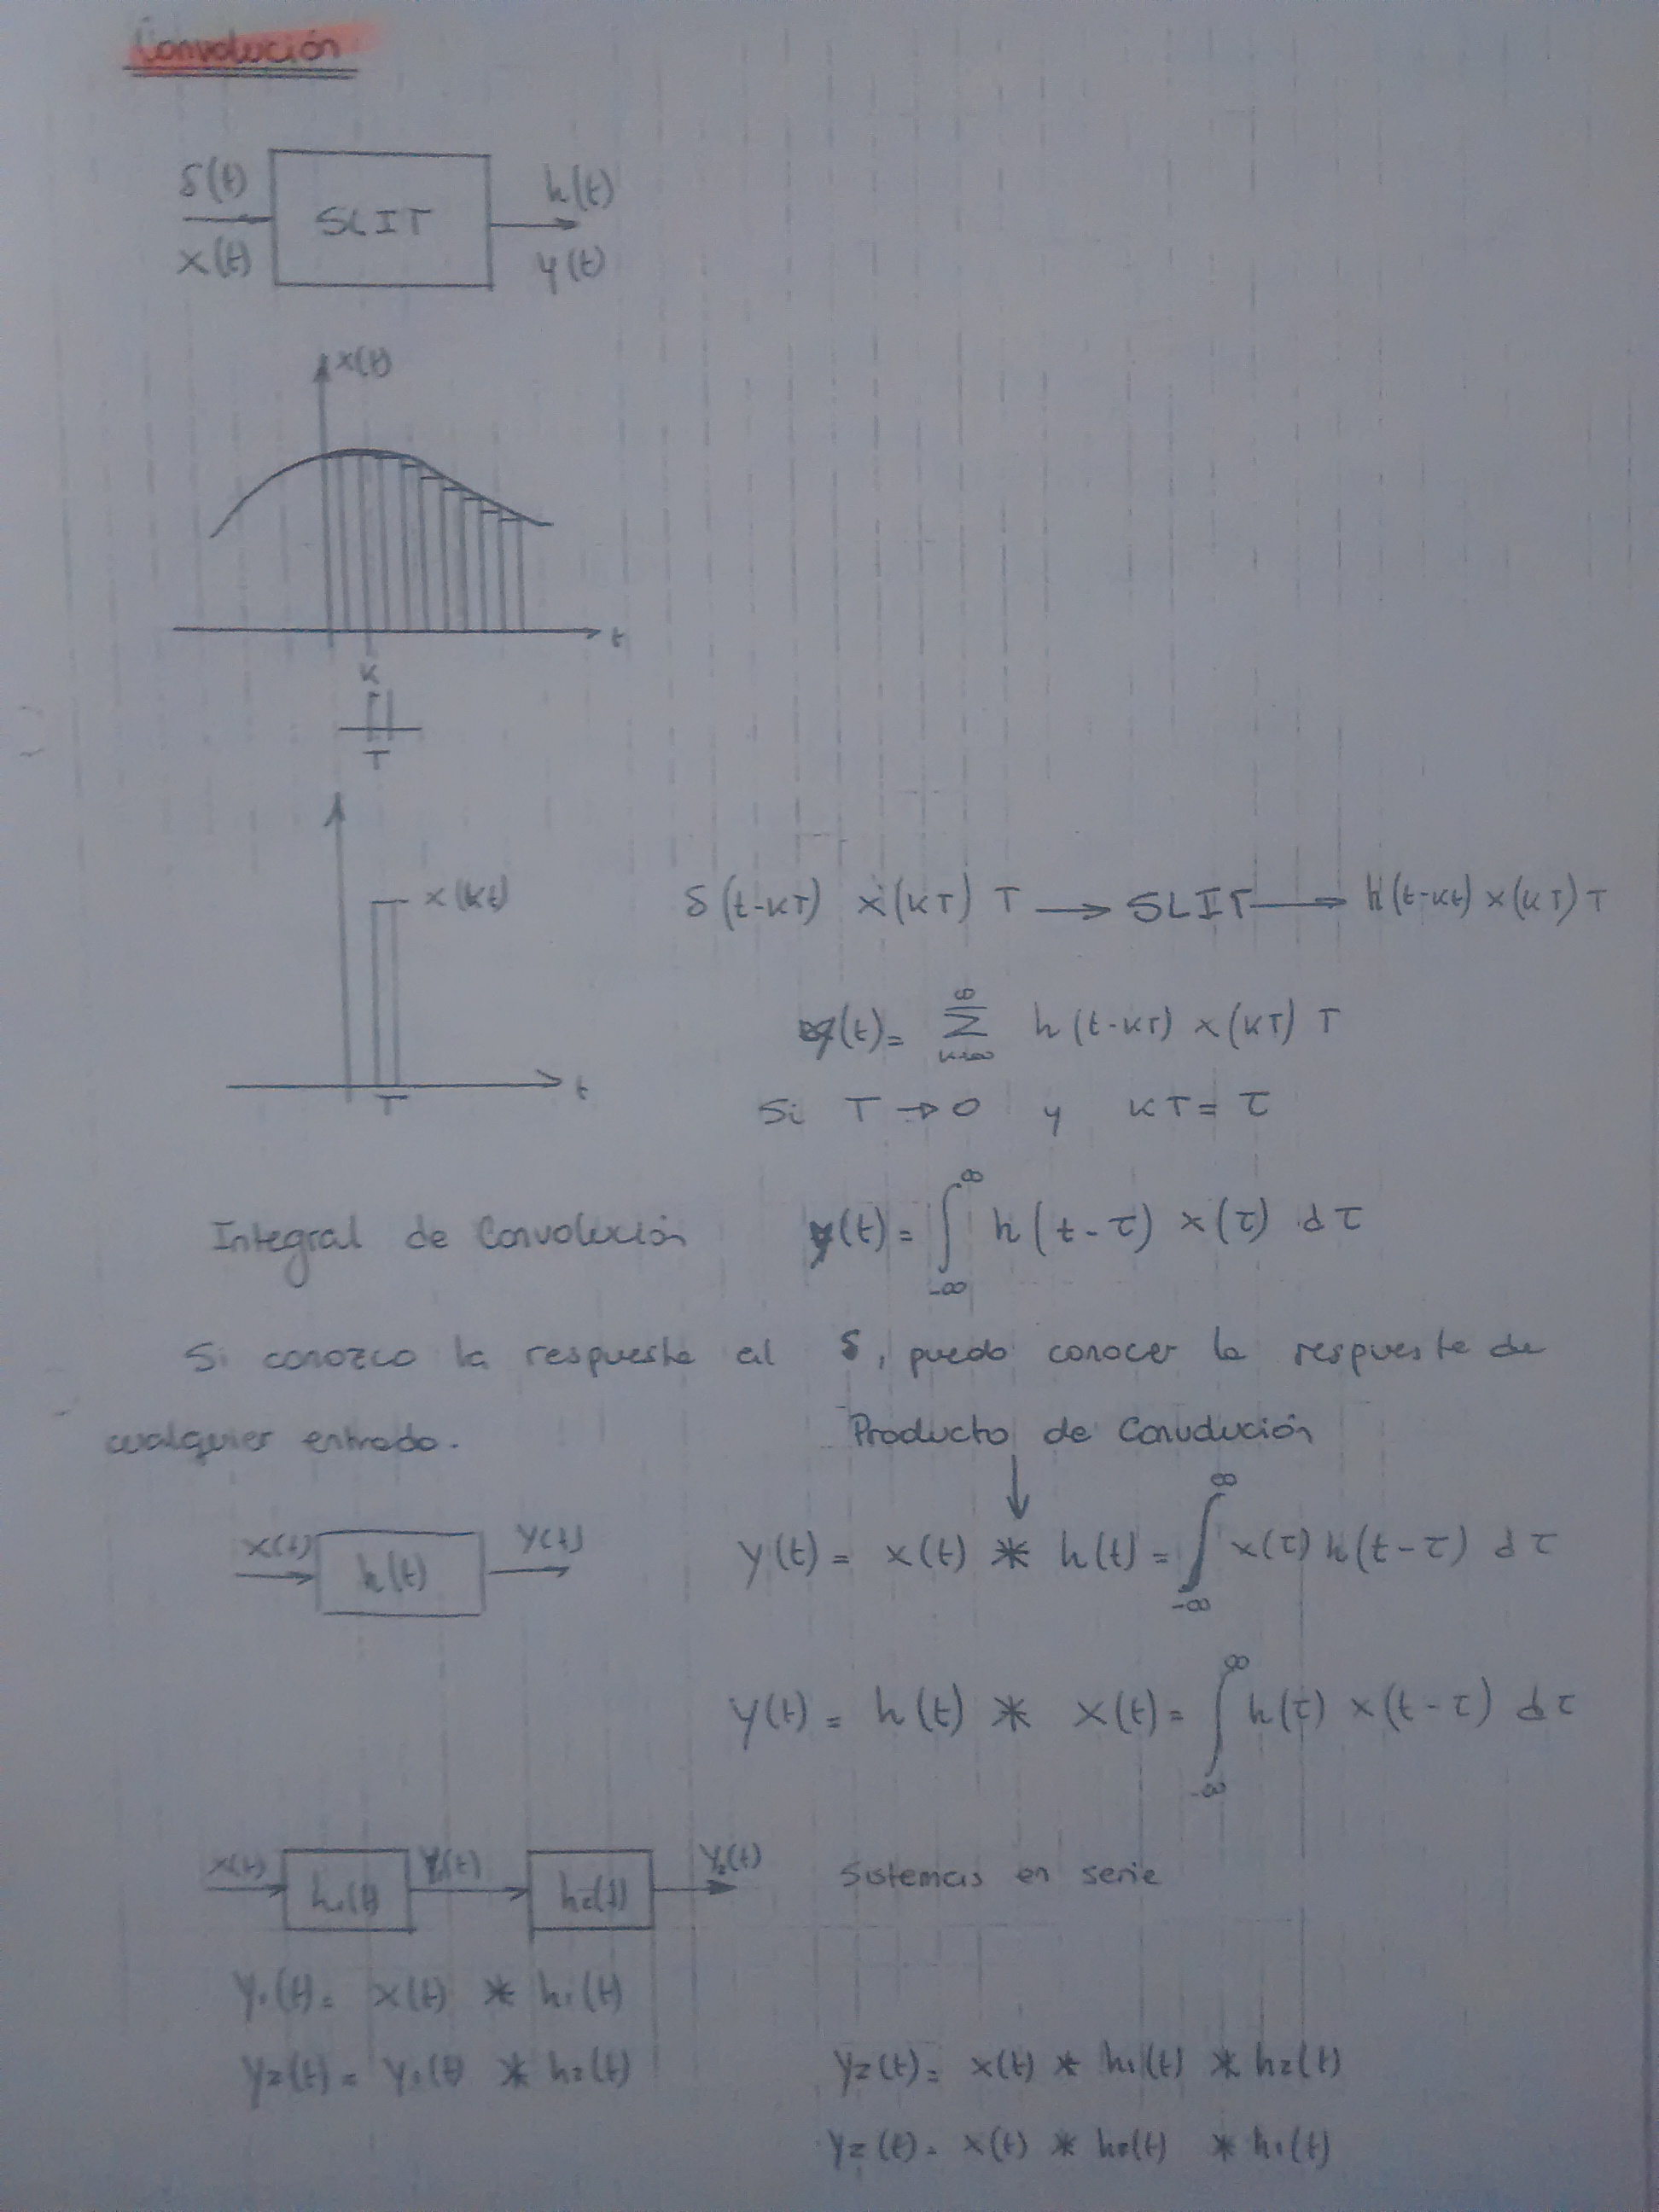 Convolución
δ(t)
x(t)
SLIT
h(t)
y(t)
x(t)
t
K
T
x(kt)
t
T
δ(t-kT) x(kT) T → SLIT → h(t-kt) x(kT) T
y(t) = ∑ h(t-kT) x(kT) T
∞
Si T → 0 y kT = τ
Integral de Convolución y(t) = ∫ h(t-τ) x(τ) dτ
∞
-∞
Si conozco la respuesta al δ, puedo conocer la respuesta de
cualquier entrada.
Producto de Convolución
x(t) h(t) y(t)
y(t) = x(t) * h(t) = ∫ x(τ) h(t-τ) dτ
∞
-∞
y(t) = h(t) * x(t) = ∫ h(τ) x(t-τ) dτ
∞
-∞
x(t) h₁(t) y₁(t) h₂(t) y₂(t) Sistemas en serie
y₁(t) = x(t) * h₁(t)
y₂(t) = y₁(t) * h₂(t)
y₂(t) = x(t) * h₁(t) * h₂(t)
y₂(t) = x(t) * h₂(t) * h₁(t)